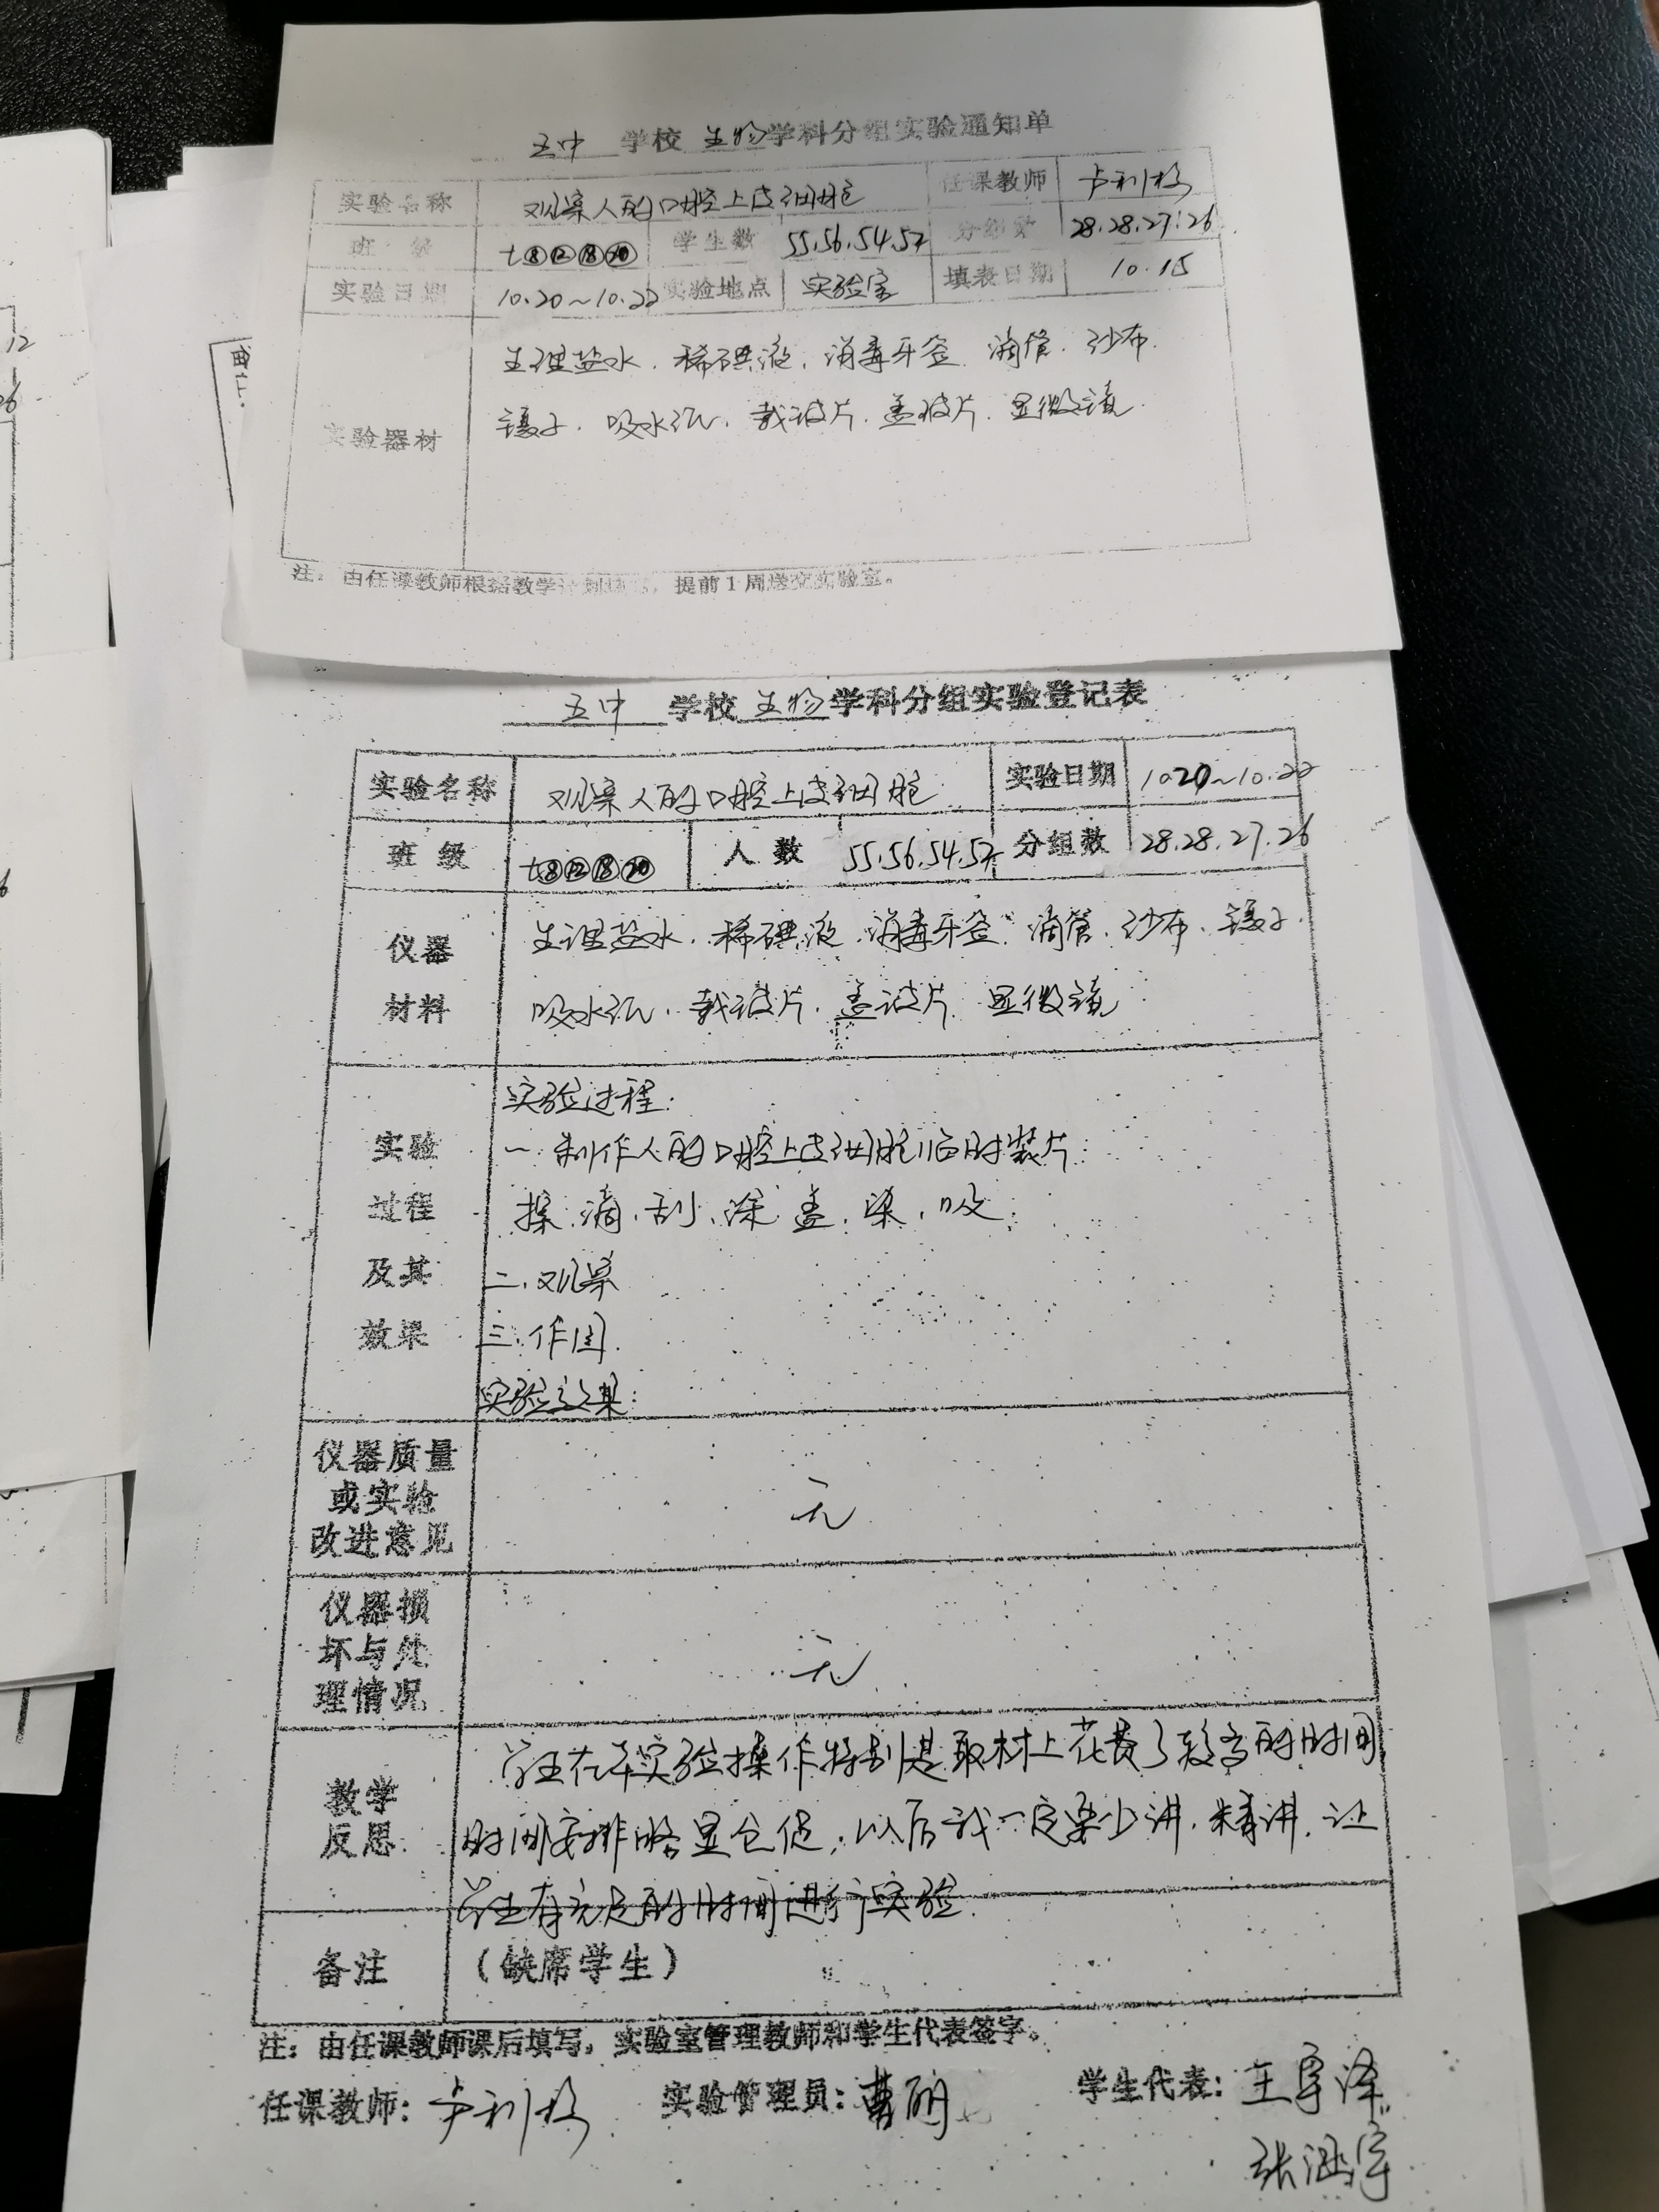 五中 学校 生物 学科分组实验通知单
实验名称 观察人的口腔上皮细胞 任课教师 卢利
班 级 七⑧⑫⑱⑳ 学生数 55.56.54.52 分组数 28.28.27.26
实验日期 10.20~10.22 实验地点 实验室 填表日期 10.15
生理盐水. 稀碘液. 消毒牙签. 滴管. 纱布.
实验器材 镊子. 吸水纸. 载玻片. 盖玻片. 显微镜.
注: 由任课教师根据教学计划填写, 提前1周送交实验室。
五中 学校 生物 学科分组实验登记表
实验名称 观察人的口腔上皮细胞 实验日期 10.20~10.22
班 级 七⑧⑫⑱⑳ 人 数 55.56.54.52 分组数 28.28.27.26
仪器 生理盐水. 稀碘液. 消毒牙签. 滴管. 纱布. 镊子.
材料 吸水纸. 载玻片. 盖玻片. 显微镜
实验过程:
实验 一. 制作人的口腔上皮细胞临时装片:
过程 擦. 滴. 刮. 涂. 盖. 染. 吸.
及其 二. 观察
效果 三. 作图.
实验效果:
仪器质量
或实验 无
改进意见
仪器损
坏与处 无
理情况
学生在本实验操作特别是取材上花费了较多的时间
教学
反思 时间安排略显仓促, 以后我一定要少讲. 精讲. 让
学生有充足的时间进行实验.
备注 (缺席学生)
注: 由任课教师课后填写, 实验室管理教师和学生代表签字。
任课教师: 卢利 实验管理员: 曹丽 学生代表: 王宇泽
张涵宇